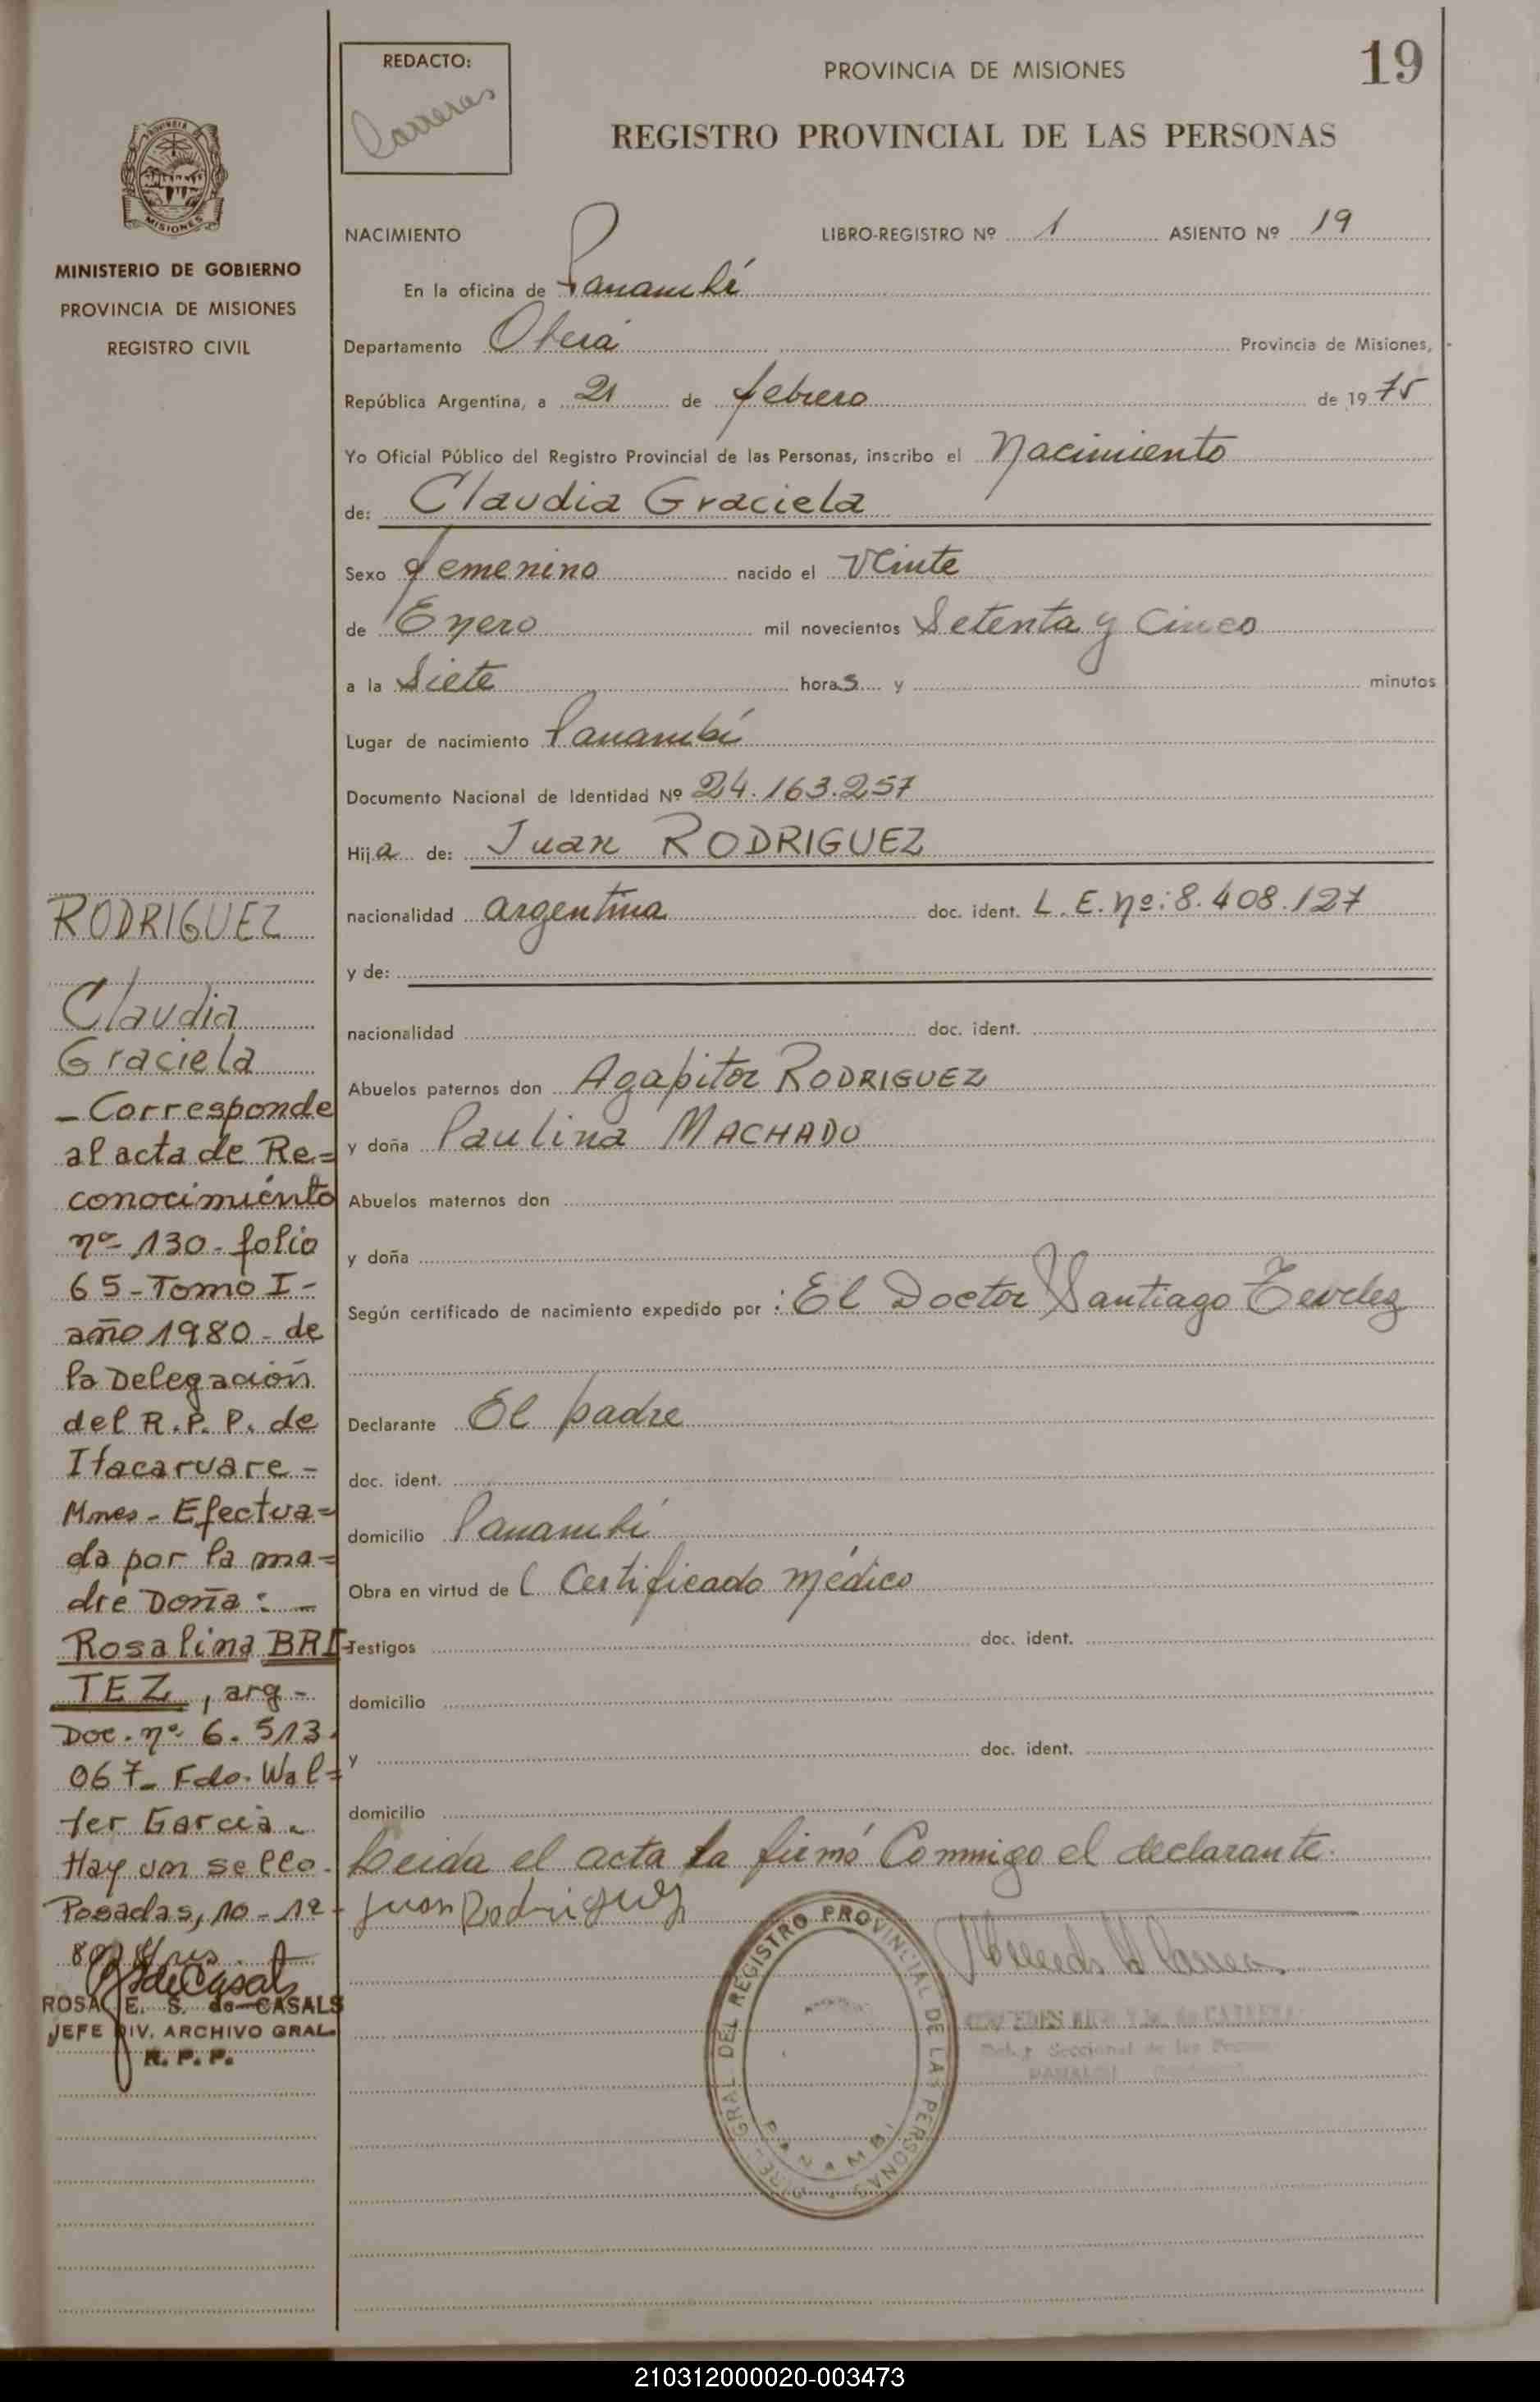 REDACTO:
Carreras
PROVINCIA DE MISIONES
19
REGISTRO PROVINCIAL DE LAS PERSONAS
MISIONES
MINISTERIO DE GOBIERNO
PROVINCIA DE MISIONES
REGISTRO CIVIL
NACIMIENTO LIBRO-REGISTRO Nº 1 ASIENTO Nº 19
En la oficina de Panambí
Departamento Oberá Provincia de Misiones,
República Argentina, a 21 de febrero de 1975
Yo Oficial Público del Registro Provincial de las Personas, inscribo el Nacimiento
de: Claudia Graciela
Sexo femenino nacido el Veinte
de Enero mil novecientos Setenta y Cinco
a la Siete horas y minutos
Lugar de nacimiento Panambí
Documento Nacional de Identidad Nº 24.163.257
Hija de: Juan RODRIGUEZ
nacionalidad argentina doc. ident. L.E.nº:8.408.127
y de:
nacionalidad doc. ident.
Abuelos paternos don Agapitor RODRIGUEZ
y doña Paulina MACHADO
Abuelos maternos don
y doña
Según certificado de nacimiento expedido por : El Doctor Santiago
Declarante El padre
doc. ident.
domicilio Panambí
Obra en virtud de Certificado médico
Testigos doc. ident.
domicilio
y doc. ident.
domicilio
Leida el acta la firmó Conmigo el declarante.
Juan Rodriguez
RODRIGUEZ
Claudia
Graciela
- Corresponde
al acta de Re=
conocimiento
nº 130 - folio
65 - Tomo I -
año 1980 - de
la Delegación
del R.P.P. de
Itacaruare -
Mnes - Efectua=
da por la ma=
dre Doña : -
Rosalina BRI-
TEZ, arg -
Doc. nº 6.513.
067 - Fdo. Wal=
ter Garcia.
Hay un sello.
Posadas, 10 - 12 -
80
ROSA E. S. de CASALS
JEFE DIV. ARCHIVO GRAL.
R. P. P.
DIREC. GRAL DEL REGISTRO PROVINCIAL DE LAS PERSONAS
PANAMBI
210312000020-003473